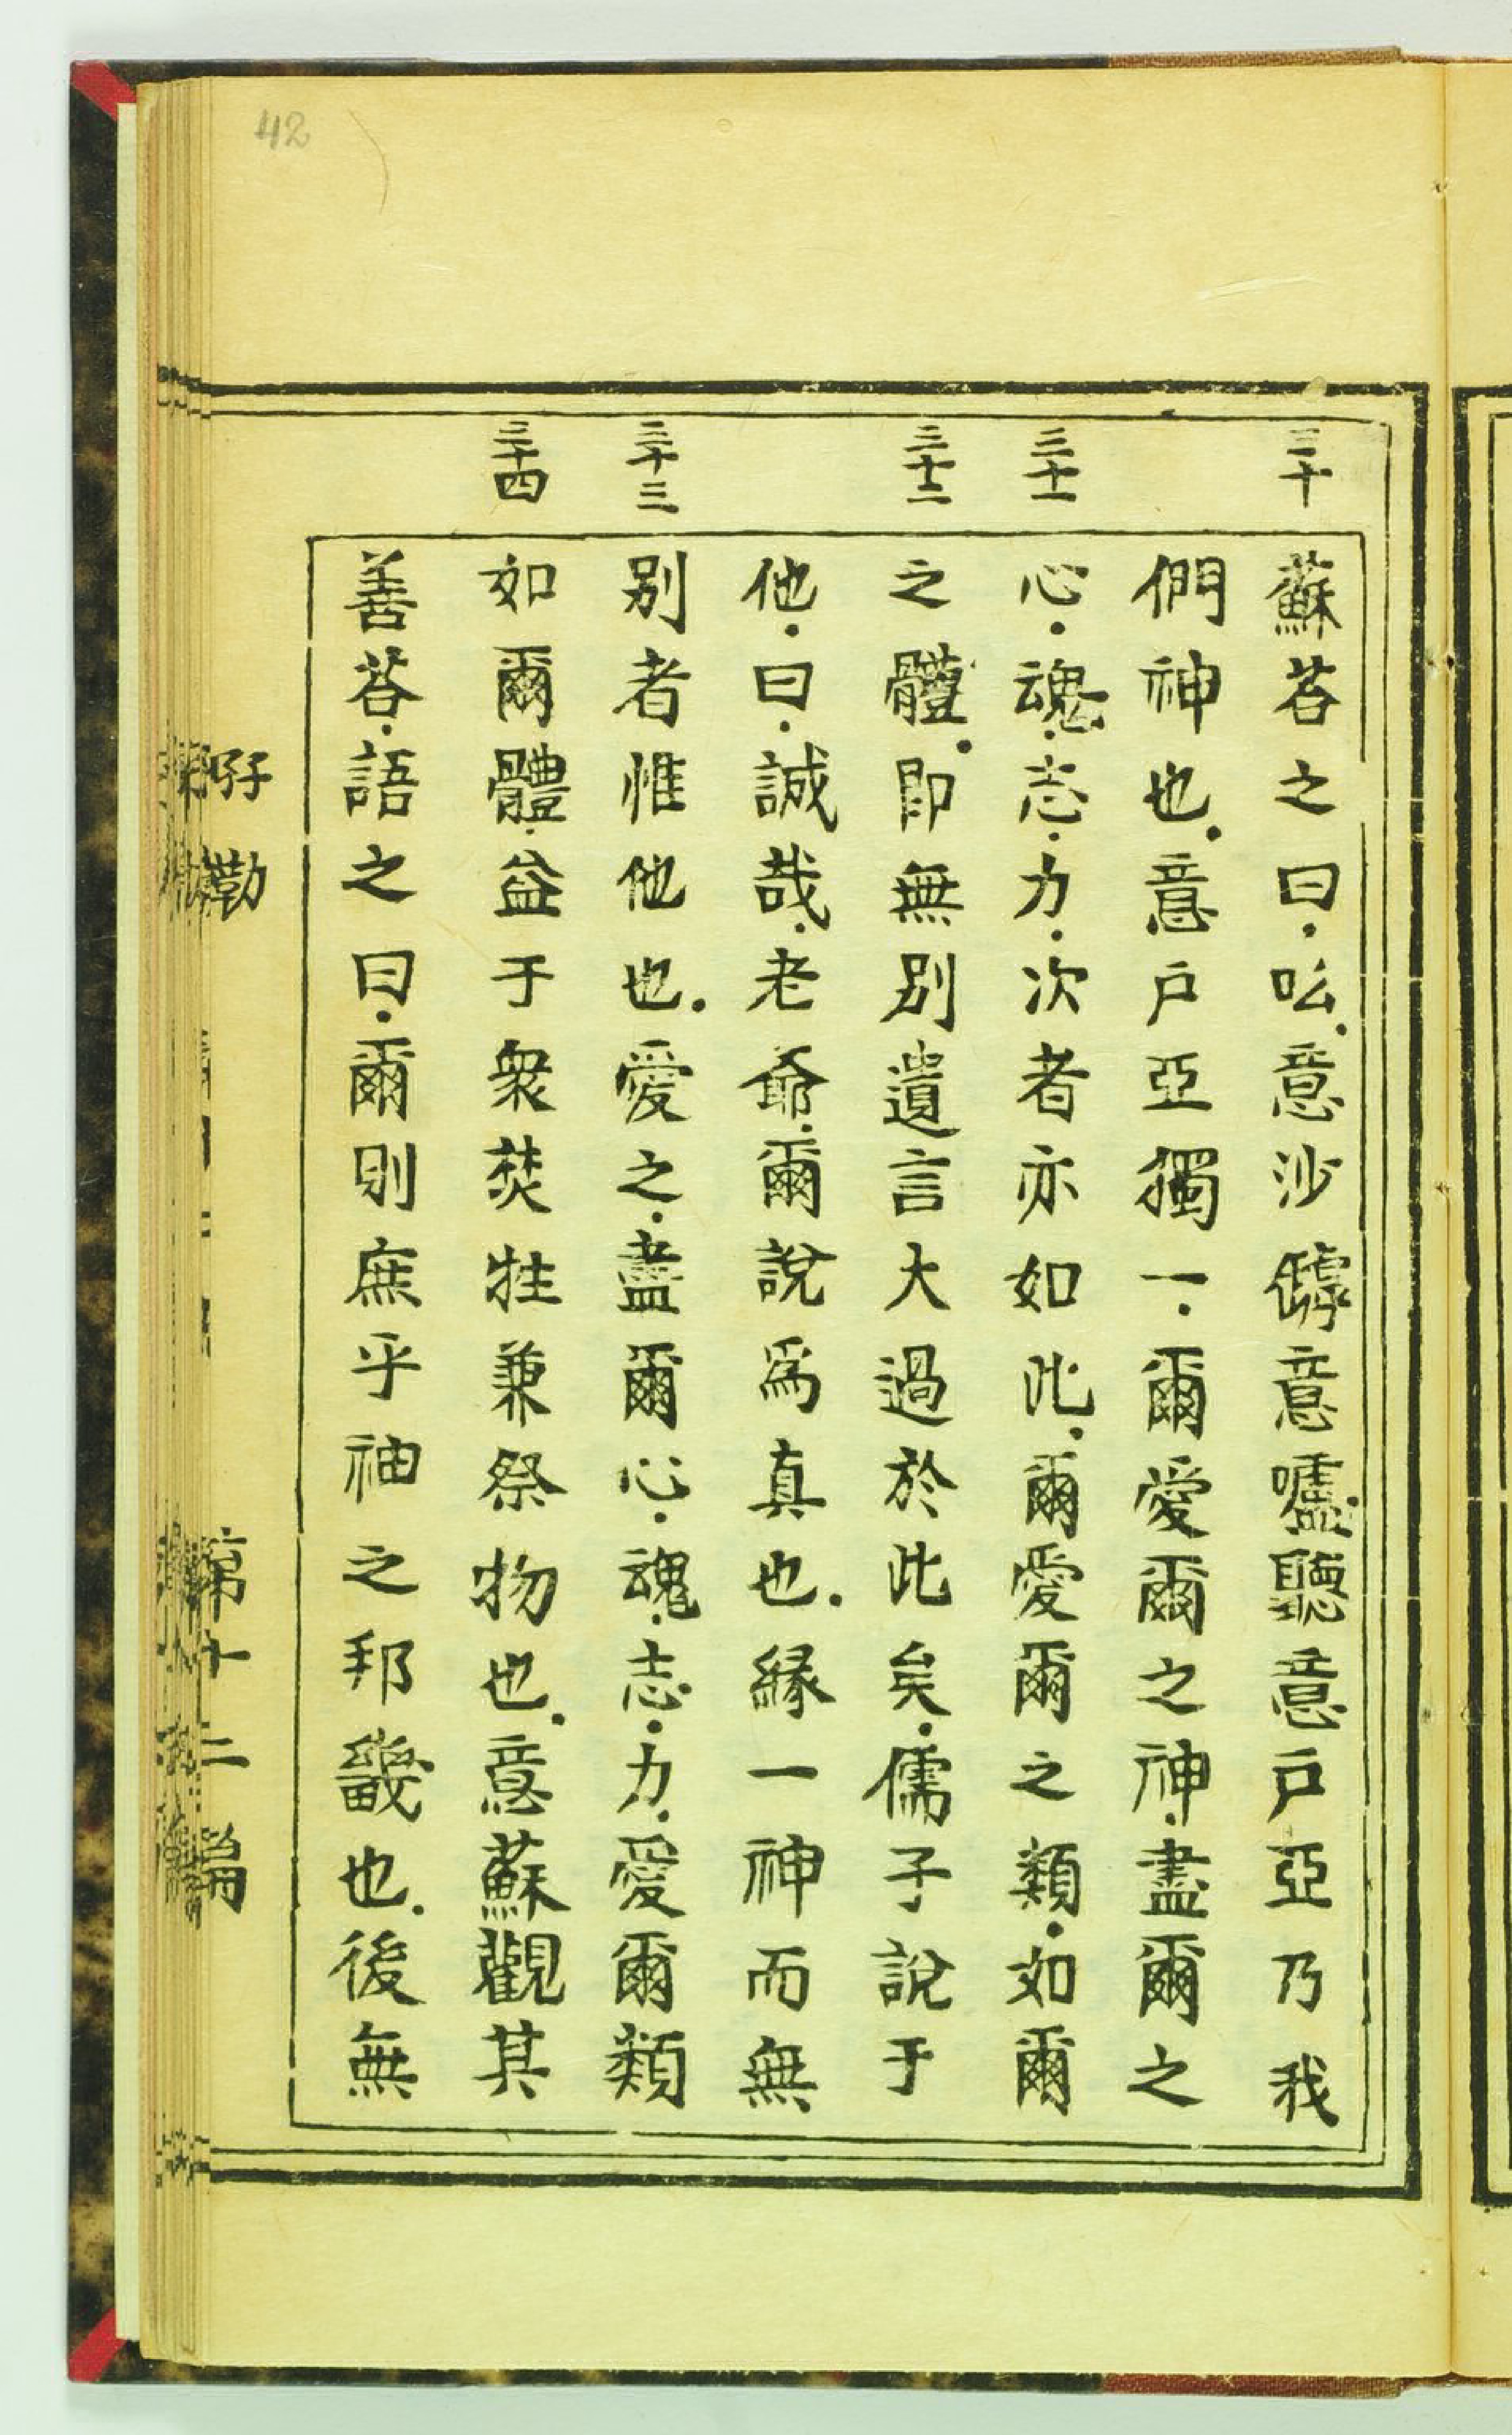 42
三十
蘇荅之曰.吆.意沙罅意嚧.聽意戶亞乃我
們神也.意戶亞獨一.爾愛爾之神.盡爾之
三十一
心.魂.志.力.次者亦如此.爾愛爾之類.如爾
三十二
之體.即無別遺言大過於此矣.儒子說于
他.曰.誠哉.老爺.爾說爲真也.緣一神而無
三十三
别者惟他也.愛之.盡爾心.魂.志.力.愛爾類
三十四
如爾體.益于衆焚牲兼祭物也.意蘇觀其
善荅.語之曰.爾則庶乎神之邦畿也.後無
第十二